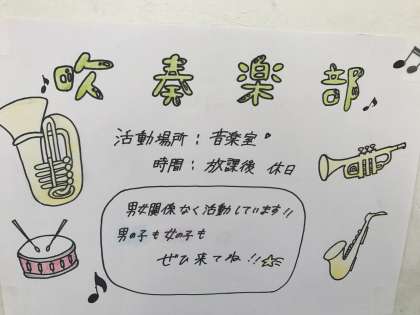 吹奏楽部
活動場所：音楽室
時間：放課後 休日
男女関係なく活動しています!!
男の子も女の子も
ぜひ来てね!!